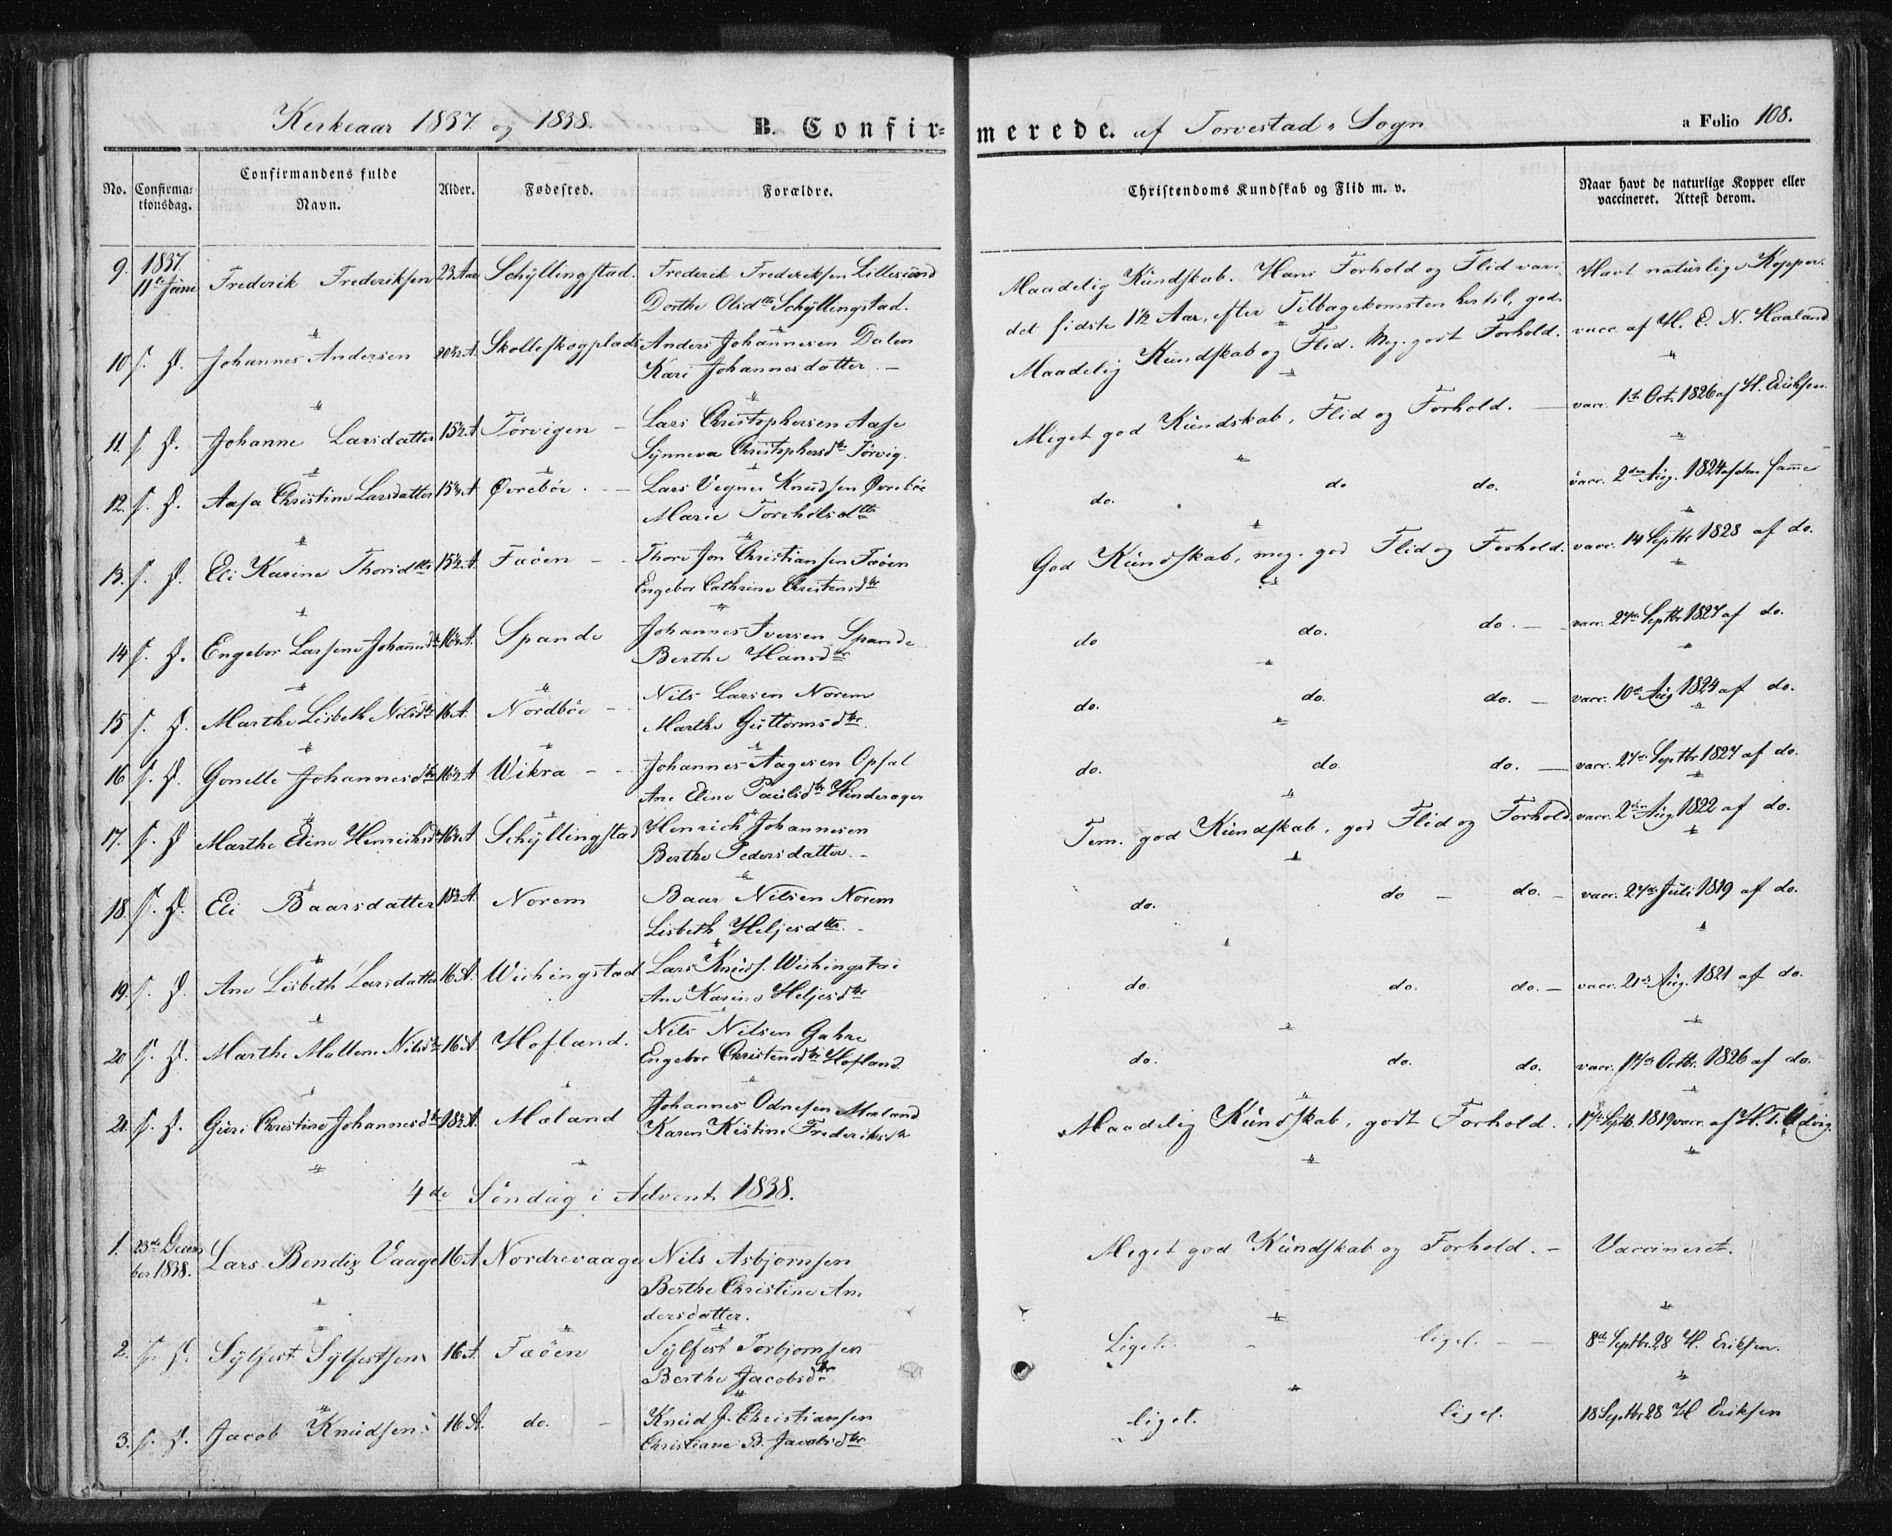 Kirkeaar 1837 og 1838. B. Confirmerede. af Torvestad Sogn a Folio 108.
No. Confirmationsdag. Confirmandens fulde Navn. Alder. Fødested. Forældre. Christendoms Kundskab og Flid m. v. Naar havt de naturlige Kopper eller vaccineret. Attest derom.
9. 1837 11te Juni Frederik Frederiksen 23 Aar Schyllingstad. Frederik Frederiksen Lillesund Maadelig Kundskab. Hans Forhold og Flid vare Havt naturlige Kopper.
Dorthe Olsdtr Schyllingstad. det sidste 1½ Aar, efter Tilbagekomsten hertil, god.
10 s. D. Johannes Andersen 20½ A. Skolleskogplads Anders Johannesen Dalen Maadelig Kundskab og Flid. Meg. godt Forhold. vacc. af H. E. N. Haaland
Kari Johannesdatter. –
11. s. D. Johanne Larsdatter 15½ A Torvigen – Lars Christophersen Aase Meget god Kundskab, Flid og Forhold. – vacc. 1ste Oct. 1826 af H. Eriksen.
Synneva Christophersdtr Torvig.
12. s. D. Aasa Christine Larsdatter 15½ A Øvrebøe – Lars Vegner Knudsen Øvrebøe do. do do. vacc. 2den Aug. 1824 af den samme
Marie Torchilsdtr
13. s. D. Eli Karine Thorsdtr 15½ A. Fæøen – Thore Jon Christiansen Fæøen God Kundskab, meg. god Flid og Forhold. vacc. 14 Septbr 1828 af do.
Engebor Cathrine Christensdtr
14 s. D. Engebor Larsine Johannesdtr 16½ A. Spande Johannes Iversen Spande do do. do. – vacc. 27de Septbr 1827 af do.
Berthe Hansdtr
15 s. D. Marthe Lisbeth Nilsdtr 16 A. Nordbøe – Nils Larsen Norem do. do. do. – vacc. 10de Aug 1824 af do.
Marthe Guttormsdtr.
16 s. D. Gonelle Johannesdtr 16½ A Wikra – Johannes Aagesen Opsal do. do. do. – vacc. 27de Septbr 1827 af do.
Ane Elene Paulsdtr Hinderager
17. s. D Marthe Eline Henrichsdtr 16½ A Schyllingstad Henrich Johannesen Tem. god Kundskab, god Flid og Forhold vacc. 2den Aug 1822 af do.
Berthe Pedersdatter. –
18. s. D. Eli Baarsdatter 18½ A. Norem Baar Nilsen Norem do. do – do. – vacc. 27de Juli 1819 af do.
Lisbeth Heljesdtr. –
19. s. D. Ane Lisbeth Larsdatter 16 A. Wichingstad Lars Knuds. Wichingstad do. do. do. – vacc. 21de Aug. 1821 af do.
Ane Karine Heljesdtr
20 s. D. Marthe Mallene Nilsdtr 16 A Hofland. Nils Nilsen Gahre do. do. do. vacc. 17de Octbr. 1826 af do.
Engebor Christensdtr Hofland
21. s. D. Guri Christine Johannesdtr 18½ A. Mæland Johannes Odnesen Mæland Maadelig Kundskab, godt Forhold. 17de Septb. 1819 vacc. af H. T. Udvig.
Karen Kistine Frederiksdtr
4de Søndag i Advent 1838.
1. 23de December 1838. Lars Bendix Vaage 16 A Nordrevaage Nils Asbjørnsen Meget god Kundskab og Forhold. – Vaccineret.
Berthe Christine An-
dersdatter.
2. s. D. Sylfest Sylfestsen 16 A. Fæöen Sylfest Torbjornsen Liget. liget. – 8de Septbr. 28 H. Eriksen.
Berthe Jacobsdtr
3. s. D. Jacob Knudsen 16 A. do. – Knud J. Christiansen liget. liget. 18 Septbr 28 H Eriksen
Christiane B. Jacobsdtr